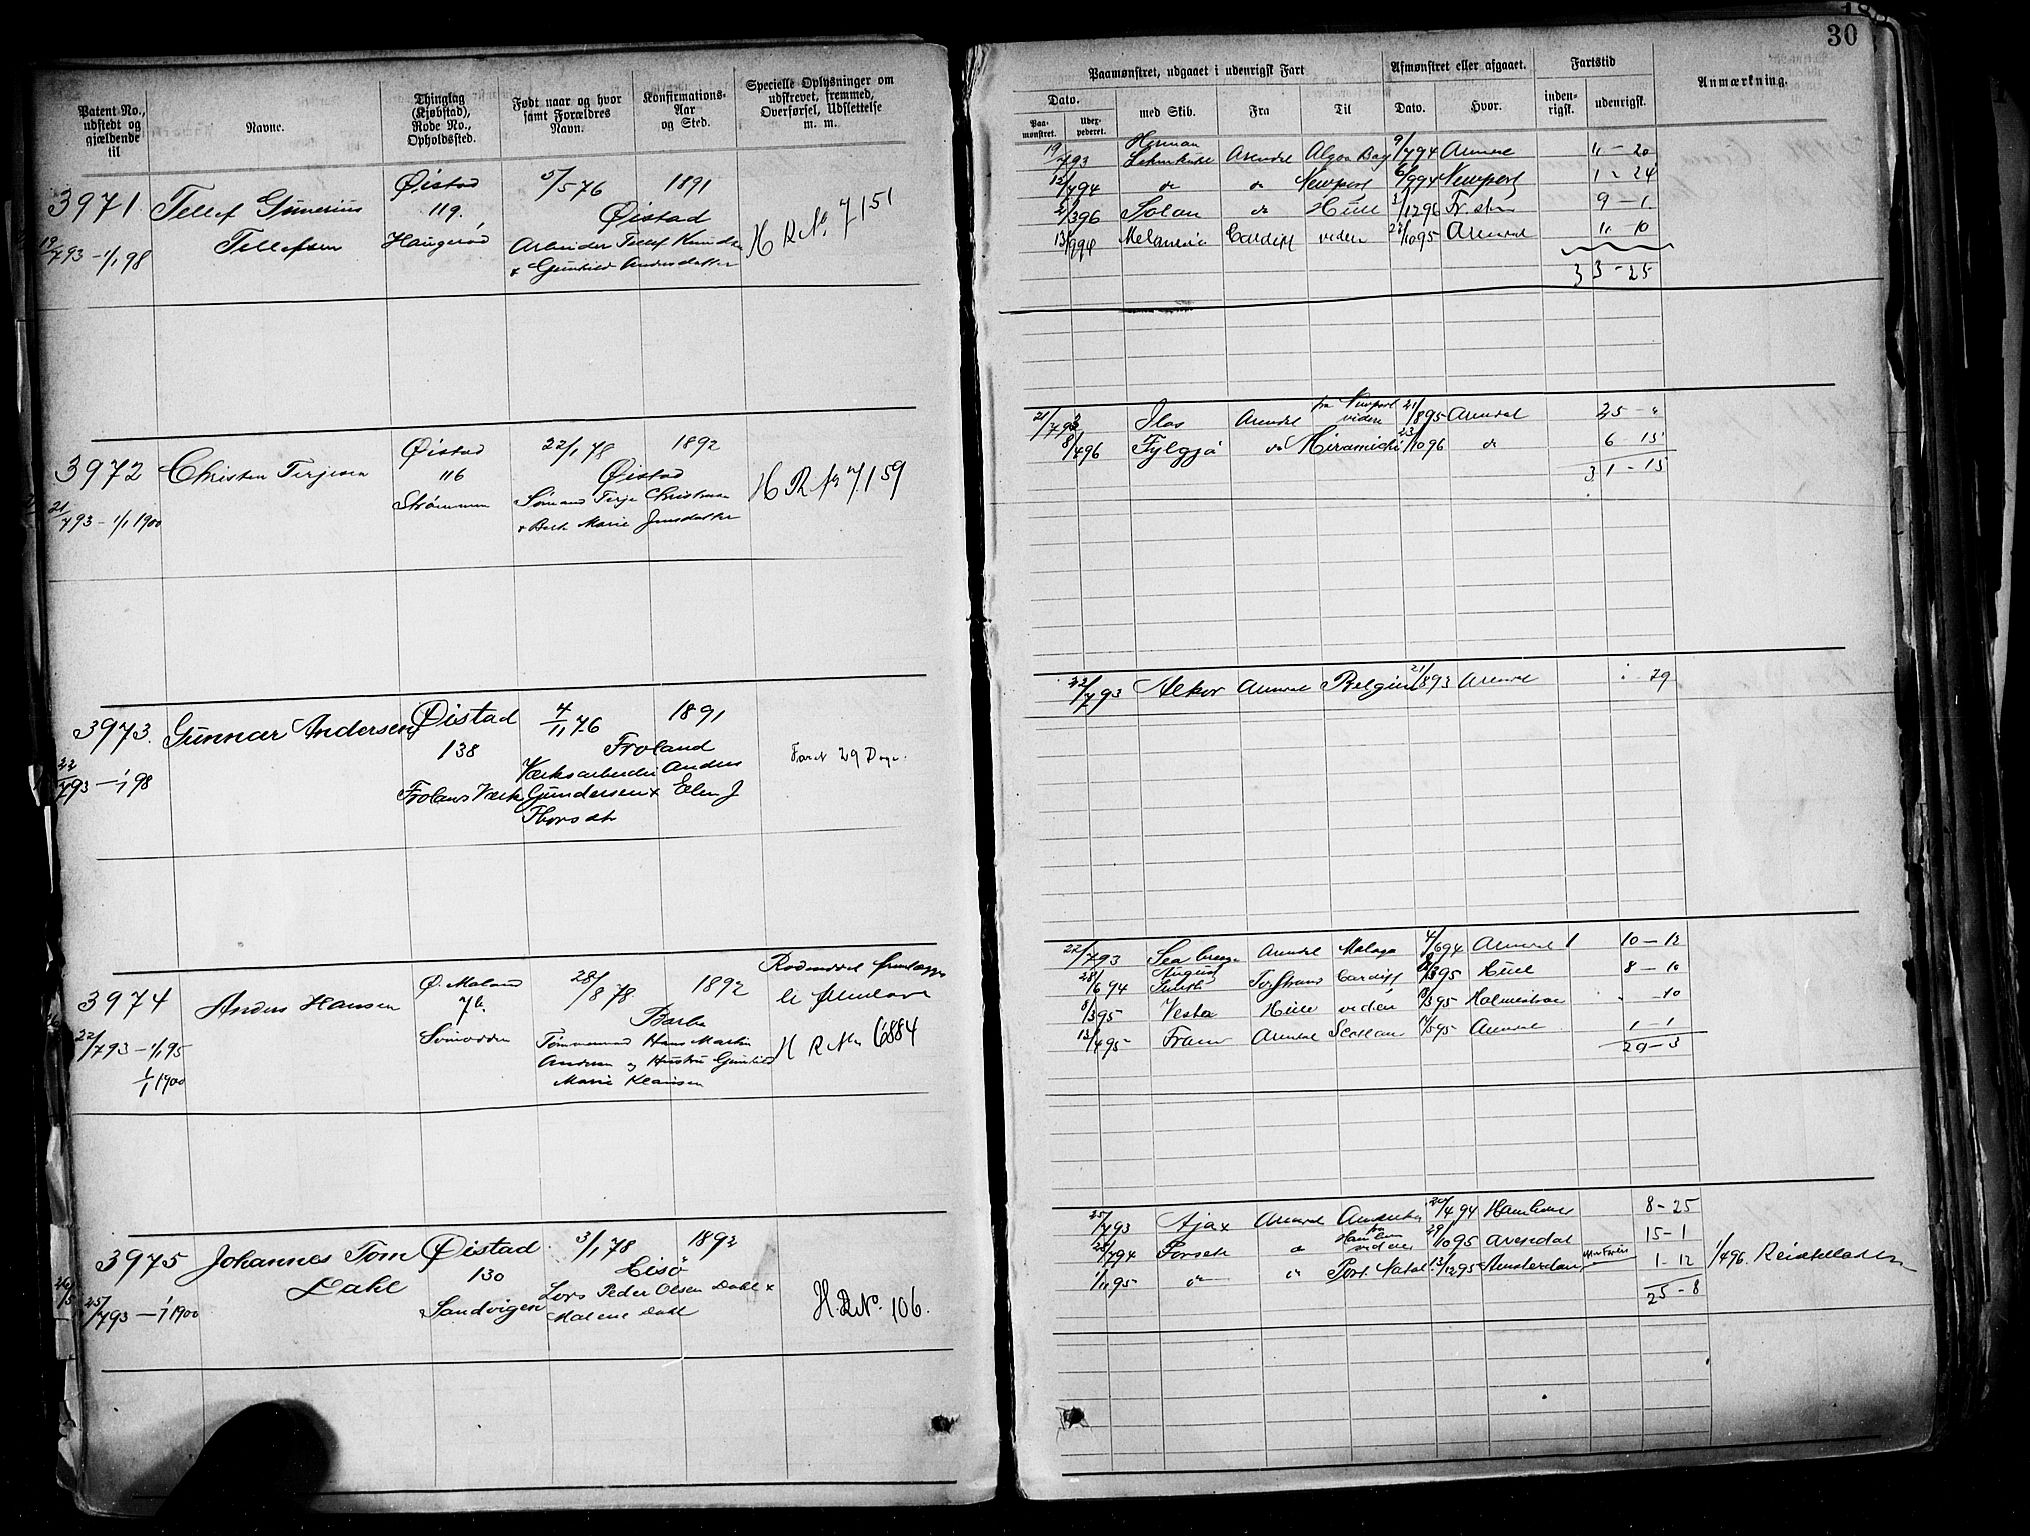 30
Patent No., udstedt og gjældende til
Navne.
Thinglag (Kjøbstad), Rode No., Opholdssted.
Født naar og hvor samt Forældres Navn.
Konfirmations-Aar og Sted.
Specielle Oplysninger om udskrevet, fremmed, Overførsel, Udslettelse m. m.
Paamønstret, udgaaet i udenrigsk Fart
Afmønstret eller afgaaet.
Fartstid
Anmærkning.
Dato.
Paamønstret.
Udexpederet.
med Skib.
Fra
Til
Dato.
Hvor.
indenrigsk.
udenrigsk.
3971 Tellef Gunerius Øistad 5/5 76 1891
Tellefsen 119. Øistad H R No 7151
19/7 93 - 1/1 98 Haugerød Arbeider Tellef
& Gunhild Andersdatter
19/7 93 Herman Lehmkuhl Arendal Algoa Bay 9/7 94 Arendal " - 20
12/7 94 do do Newport Newport 1 - 24
2/3 96 Solon do Hull 9 - 1
13/9 94 Cardiff viden 10 95 Arendal " 10
33 - 25
3972 Christen Terjesen Øistad 22/1 78 1892
116 Øistad H R No 7159
21/7 93 - 1/1 1900 Strømmen Sømand Terje Christensen
& Marie Jensdatter
21/7 93 Arendal fra Newport viden 21/8 95 Arendal 25 - "
8/4 96 Fylgja do Miramichi 23/10 96 do 6 15
31 - 15
3973. Gunnar Andersen Øistad 4/11 76 1891
138 Froland Faret 29 Dage.
22/7 93 - 1/1 98 Frolans Værk Værksarbeider Anders
Gundersen & Elen J
Thorsdt
22/7 93 Alkor Arendal Belgien 21/8 93 Arendal 29
3974 Anders Hansen Ø. Moland 28/8 78. 1892
7b. Barbu
22/7 93 - 1/1 95 Tømmermand Hans Martin H R No 6884
1/1 1900 og Hustru Gunhild
Marie
22/7 93 Arendal Malaga 4/6 94 Arendal 1 10 - 12
28/6 94 August Cardiff Hull 8 - 10
8/3 95 Vesta Hull viden Holmestrand - 10
13/4 95 Fram Arendal Arendal 1 - 1
29 - 3
3975 Johannes Tom Øistad 3/1 78 1892
Dahl 130 Hisø
25/7 93 - 1/1 1900 Sandvigen Lods Peder Olsen Dahl & H. R No. 106.
Malene Dahl
25/7 93 Ajax Arendal 20/4 94 8 - 25
28/7 94 Forseti do viden 29/10 95 Arendal 15 - 1
1/11 95 " do Port Natal 13/12 95 Amsterdam 1 - 12 1/4 96.
25 - 8